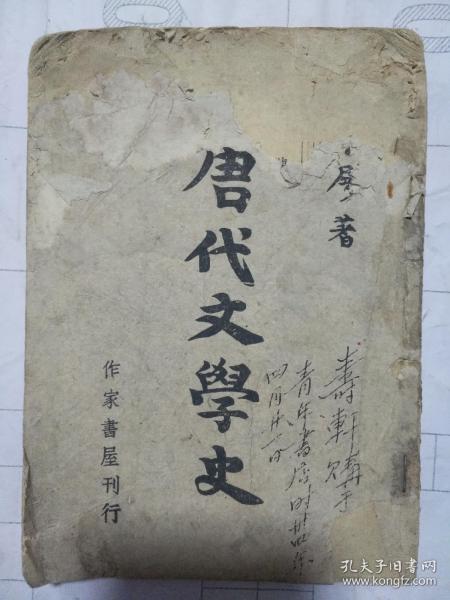 著
唐代文學史
壽軒購于
青年書店时卅四年
四月廿八日
作家書屋刊行
孔夫子旧书网
www.kongfz.com